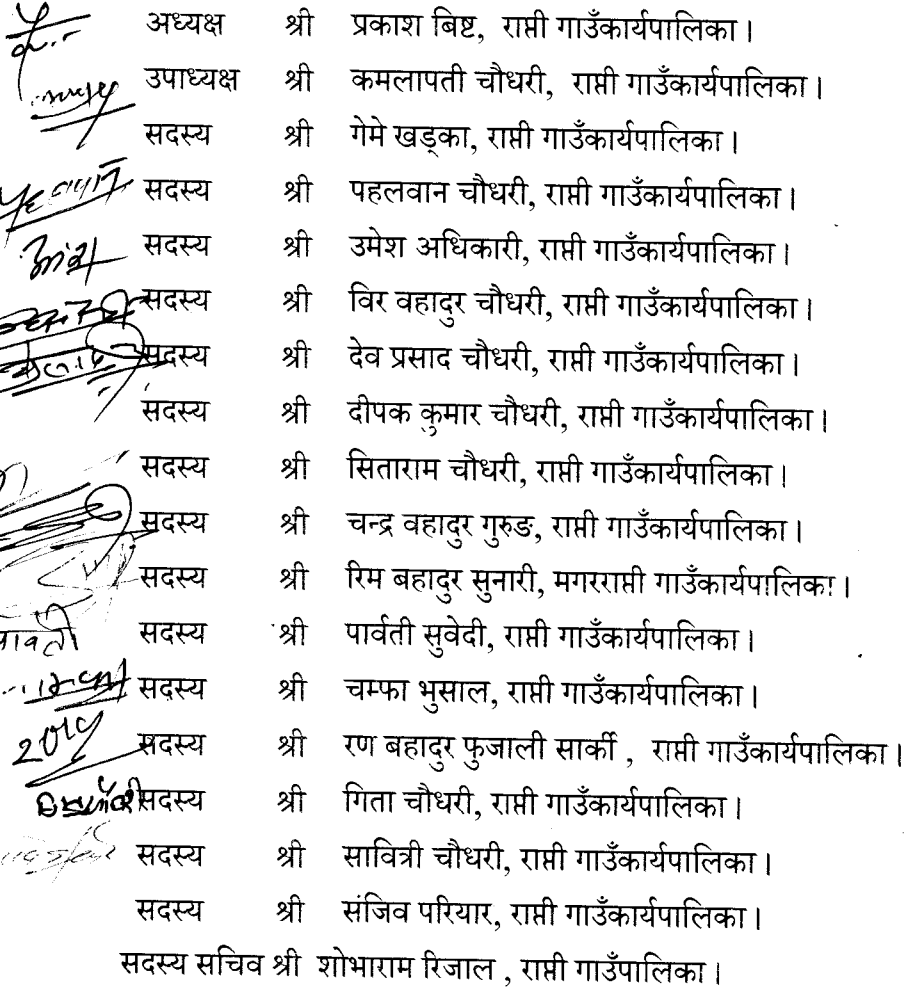 अध्यक्ष श्री प्रकाश बिष्ट, राप्ती गाउँकार्यपालिका ।
उपाध्यक्ष श्री कमलापती चौधरी, राप्ती गाउँकार्यपालिका ।
सदस्य श्री गेमे खड्का, राप्ती गाउँकार्यपालिका ।
सदस्य श्री पहलवान चौधरी, राप्ती गाउँकार्यपालिका ।
सदस्य श्री उमेश अधिकारी, राप्ती गाउँकार्यपालिका ।
सदस्य श्री विर वहादुर चौधरी, राप्ती गाउँकार्यपालिका ।
सदस्य श्री देव प्रसाद चौधरी, राप्ती गाउँकार्यपालिका ।
सदस्य श्री दीपक कुमार चौधरी, राप्ती गाउँकार्यपालिका ।
सदस्य श्री सिताराम चौधरी, राप्ती गाउँकार्यपालिका ।
सदस्य श्री चन्द्र वहादुर गुरुङ, राप्ती गाउँकार्यपालिका ।
सदस्य श्री रिम बहादुर सुनारी, मगरराप्ती गाउँकार्यपालिका ।
सदस्य श्री पार्वती सुवेदी, राप्ती गाउँकार्यपालिका ।
सदस्य श्री चम्फा भुसाल, राप्ती गाउँकार्यपालिका ।
सदस्य श्री रण बहादुर फुजाली सार्की , राप्ती गाउँकार्यपालिका ।
सदस्य श्री गिता चौधरी, राप्ती गाउँकार्यपालिका ।
सदस्य श्री सावित्री चौधरी, राप्ती गाउँकार्यपालिका ।
सदस्य श्री संजिव परियार, राप्ती गाउँकार्यपालिका ।
सदस्य सचिव श्री शोभाराम रिजाल , राप्ती गाउँपालिका ।